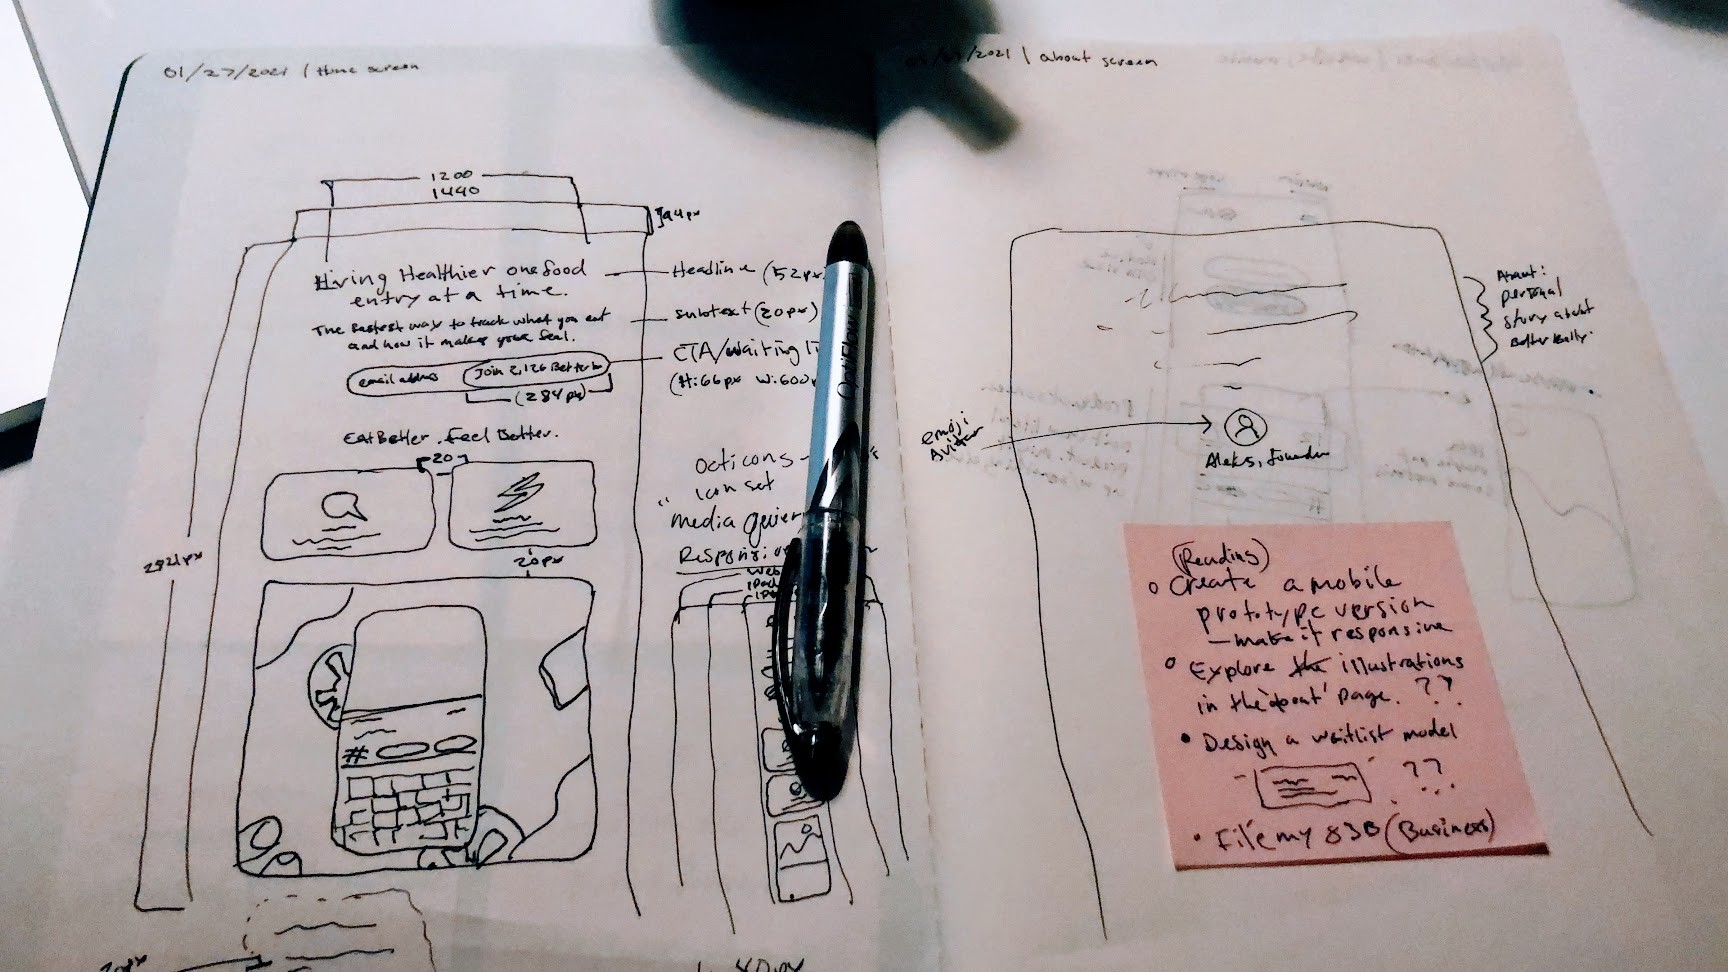 01/27/2021 | Home screen
1200
1440
94px
Living Healthier one food
entry at a time.
Headline (52px
The fastest way to track what you eat
and how it makes you feel.
subtext (20px)
CTA/waiting li
(H:66px W:600
email address
Join 2,126 Better
(284px)
Eat Better. Feel Better.
20
20px
Octicons
icon set
"media
Responsive
Web
2021 | about screen
About:
personal
story about
Better Belly.
emoji
Avitar
Aleks, founder
(Reading)
Create a mobile
prototype version
— make it responsive
Explore the illustrations
in the 'about' page. ??
Design a waitlist model
??
File my 83B (Business)
20px